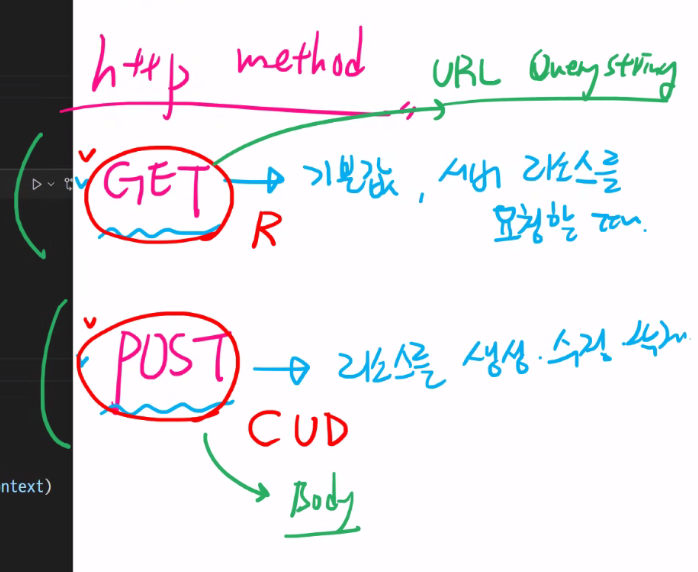 http method
URL Querystring
GET → 기본값, 서버 리소스를
요청할 때.
R
POST → 리소스를 생성·수정·삭제
CUD
ontext)
Body